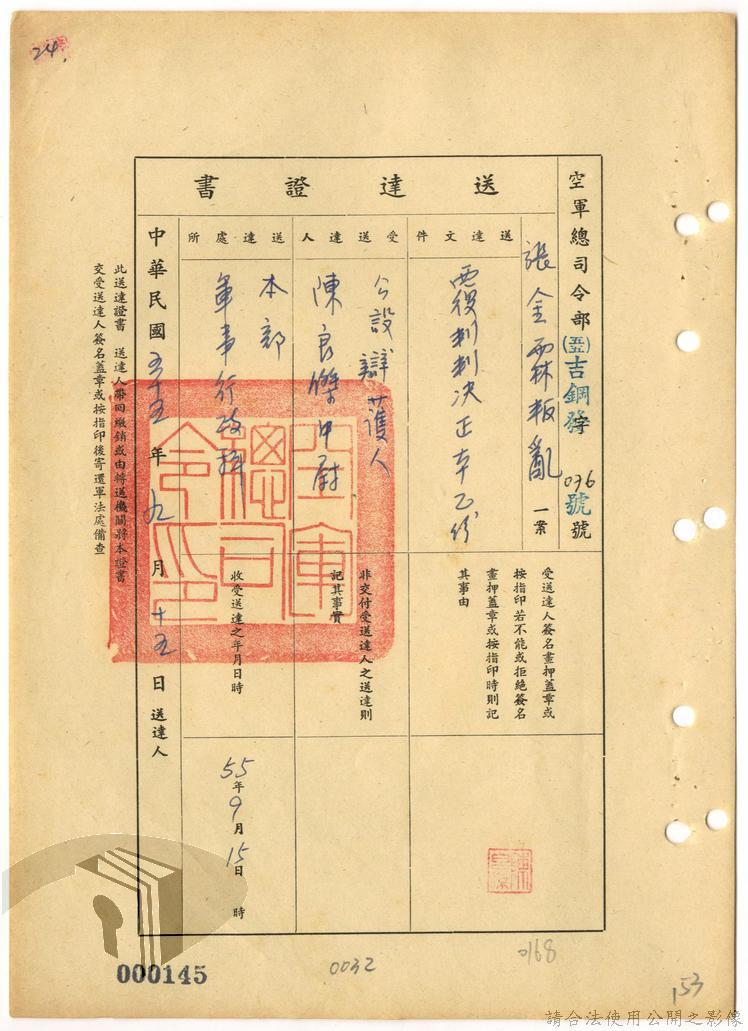 24.
空軍總司令部(五五)吉鋼發字076號號
送達證書
張金霖叛亂一案
送達文件
覆判判決正本乙份
受送達人簽名畫押蓋章或
按指印若不能或拒絕簽名
畫押蓋章或按指印時則記
其事由
受送達人
公設辯護人
陳良傑中尉
非交付受送達人之送達則
記其事實
送達處所
本部
軍事行政科
收受送達之年月日時
55年9月15日 時
中華民國五十五年九月十五日送達人
此送達證書 送達人帶回繳銷或由轉送機關將本證書
交受送達人簽名蓋章或按指印後寄還軍法處備查
空軍
總司
令印
000145
0032
0168
153
請合法使用公開之影像